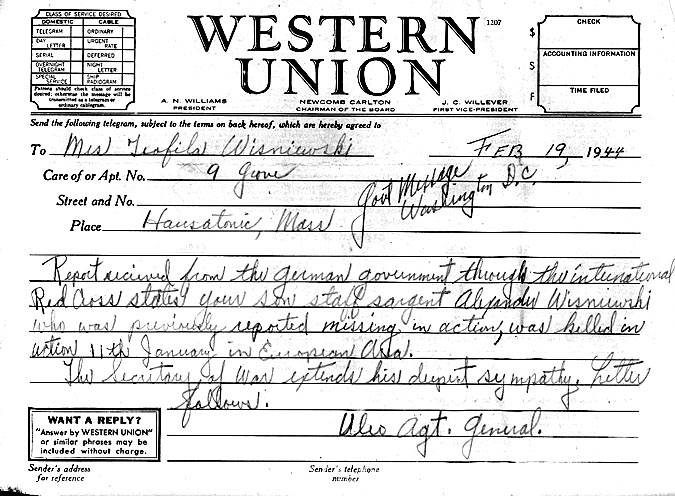 CLASS OF SERVICE DESIRED
DOMESTIC CABLE
TELEGRAM ORDINARY
DAY LETTER URGENT RATE
SERIAL DEFERRED
OVERNIGHT TELEGRAM NIGHT LETTER
SPECIAL SERVICE SHIP RADIOGRAM
Patrons should check class of service desired; otherwise the message will be transmitted as a telegram or ordinary cablegram.
WESTERN
UNION
1207
A. N. WILLIAMS
PRESIDENT
NEWCOMB CARLTON
CHAIRMAN OF THE BOARD
J. C. WILLEVER
FIRST VICE-PRESIDENT
$
CHECK
ACCOUNTING INFORMATION
S
F
TIME FILED
Send the following telegram, subject to the terms on back hereof, which are hereby agreed to
To Mrs Teofila Wisniewski FEB 19, 1944
Care of or Apt. No. 9 Grove
Street and No.
Govt Message
Washington D.C.
Place Housatonic, Mass
Report recieved from the german government through the international
Red Cross states your son staff sargent Alexander Wisniewski
who was previously reported missing in action, was killed in
action 11th January in European Area.
The Secretary of War extends his deepest sympathy. Letter
follows.
Ulio Agt. General.
WANT A REPLY?
"Answer by WESTERN UNION"
or similar phrases may be
included without charge.
Sender's address
for reference
Sender's telephone
number